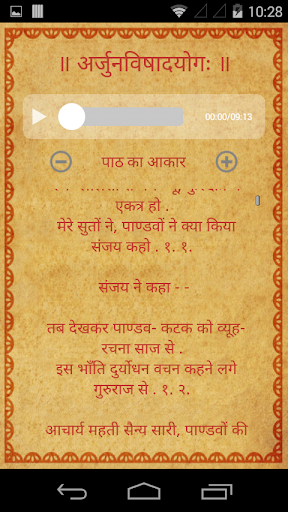 10:28
॥ अर्जुनविषादयोगः ॥
00:00/09:13
पाठ का आकार
एकत्र हो .
मेरे सुतों ने, पाण्डवों ने क्या किया
संजय कहो . १. १.
संजय ने कहा - -
तब देखकर पाण्डव- कटक को व्यूह-
रचना साज से .
इस भाँति दुर्योधन वचन कहने लगे
गुरुराज से . १. २.
आचार्य महती सैन्य सारी, पाण्डवों की